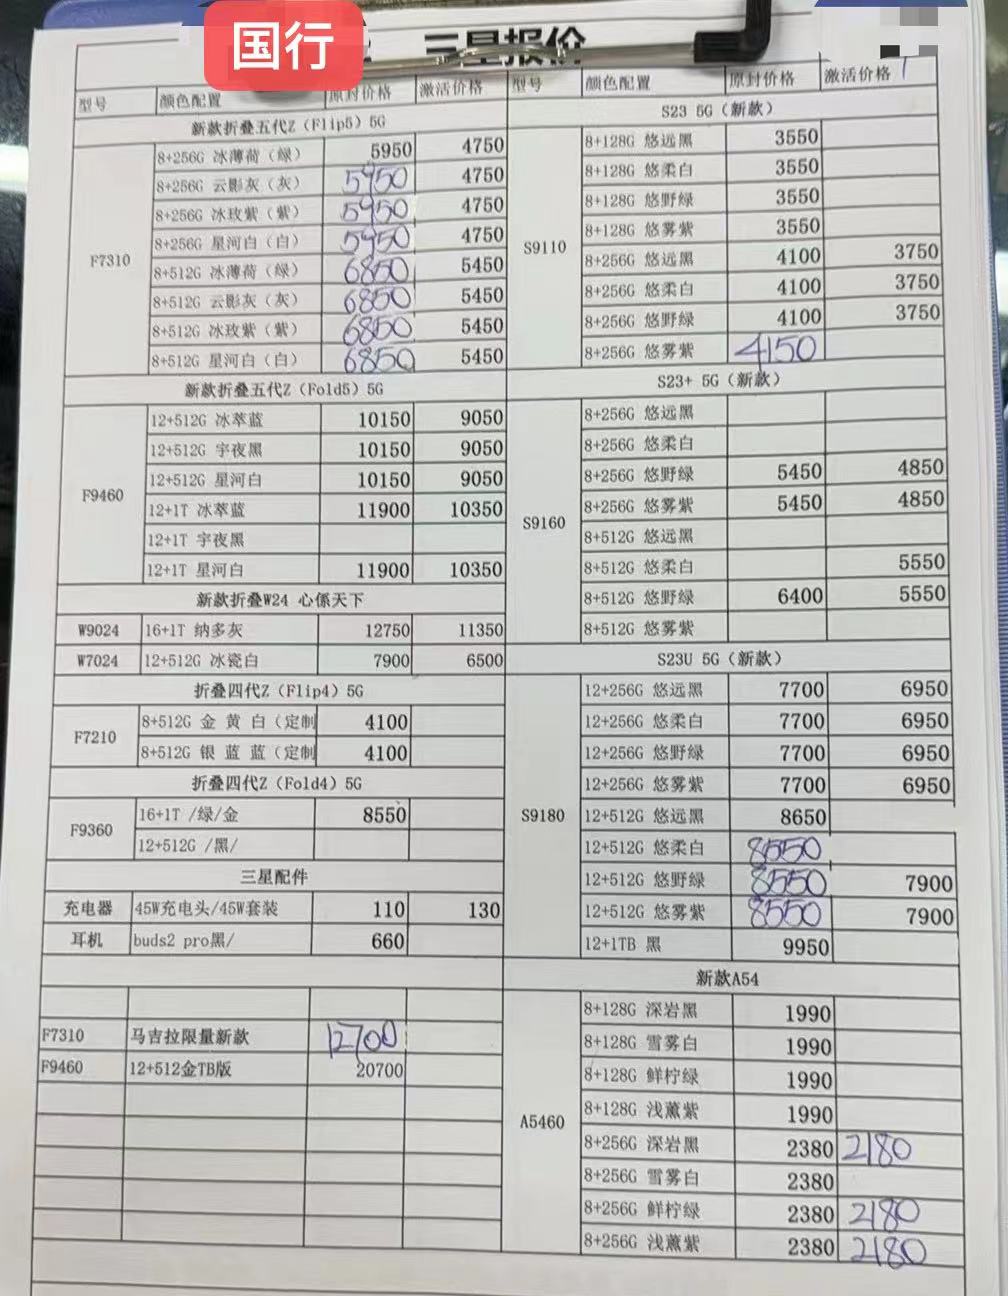 国行
三星报价
型号 颜色配置 原封价格 激活价格
新款折叠五代Z（Flip5）5G
F7310
8+256G 冰薄荷（绿） 5950 4750
8+256G 云影灰（灰） 5950 4750
8+256G 冰玫紫（紫） 5950 4750
8+256G 星河白（白） 5950 4750
8+512G 冰薄荷（绿） 6850 5450
8+512G 云影灰（灰） 6850 5450
8+512G 冰玫紫（紫） 6850 5450
8+512G 星河白（白） 6850 5450
新款折叠五代Z（Fold5）5G
F9460
12+512G 冰萃蓝 10150 9050
12+512G 宇夜黑 10150 9050
12+512G 星河白 10150 9050
12+1T 冰萃蓝 11900 10350
12+1T 宇夜黑
12+1T 星河白 11900 10350
新款折叠W24 心係天下
W9024 16+1T 纳多灰 12750 11350
W7024 12+512G 冰瓷白 7900 6500
折叠四代Z（Flip4）5G
F7210
8+512G 金 黄 白（定制 4100
8+512G 银 蓝 蓝（定制 4100
折叠四代Z（Fold4）5G
F9360
16+1T /绿/金 8550
12+512G /黑/
三星配件
充电器 45W充电头/45W套装 110 130
耳机 buds2 pro黑/ 660
F7310 马吉拉限量新款 12700
F9460 12+512金TB版 20700
型号 颜色配置 原封价格 激活价格
S23 5G（新款）
S9110
8+128G 悠远黑 3550
8+128G 悠柔白 3550
8+128G 悠野绿 3550
8+128G 悠雾紫 3550
8+256G 悠远黑 4100 3750
8+256G 悠柔白 4100 3750
8+256G 悠野绿 4100 3750
8+256G 悠雾紫 4150
S23+ 5G（新款）
S9160
8+256G 悠远黑
8+256G 悠柔白
8+256G 悠野绿 5450 4850
8+256G 悠雾紫 5450 4850
8+512G 悠远黑
8+512G 悠柔白 5550
8+512G 悠野绿 6400 5550
8+512G 悠雾紫
S23U 5G（新款）
S9180
12+256G 悠远黑 7700 6950
12+256G 悠柔白 7700 6950
12+256G 悠野绿 7700 6950
12+256G 悠雾紫 7700 6950
12+512G 悠远黑 8650
12+512G 悠柔白 8550
12+512G 悠野绿 8550 7900
12+512G 悠雾紫 8550 7900
12+1TB 黑 9950
新款A54
A5460
8+128G 深岩黑 1990
8+128G 雪雾白 1990
8+128G 鲜柠绿 1990
8+128G 浅薰紫 1990
8+256G 深岩黑 2380 2180
8+256G 雪雾白 2380
8+256G 鲜柠绿 2380 2180
8+256G 浅薰紫 2380 2180